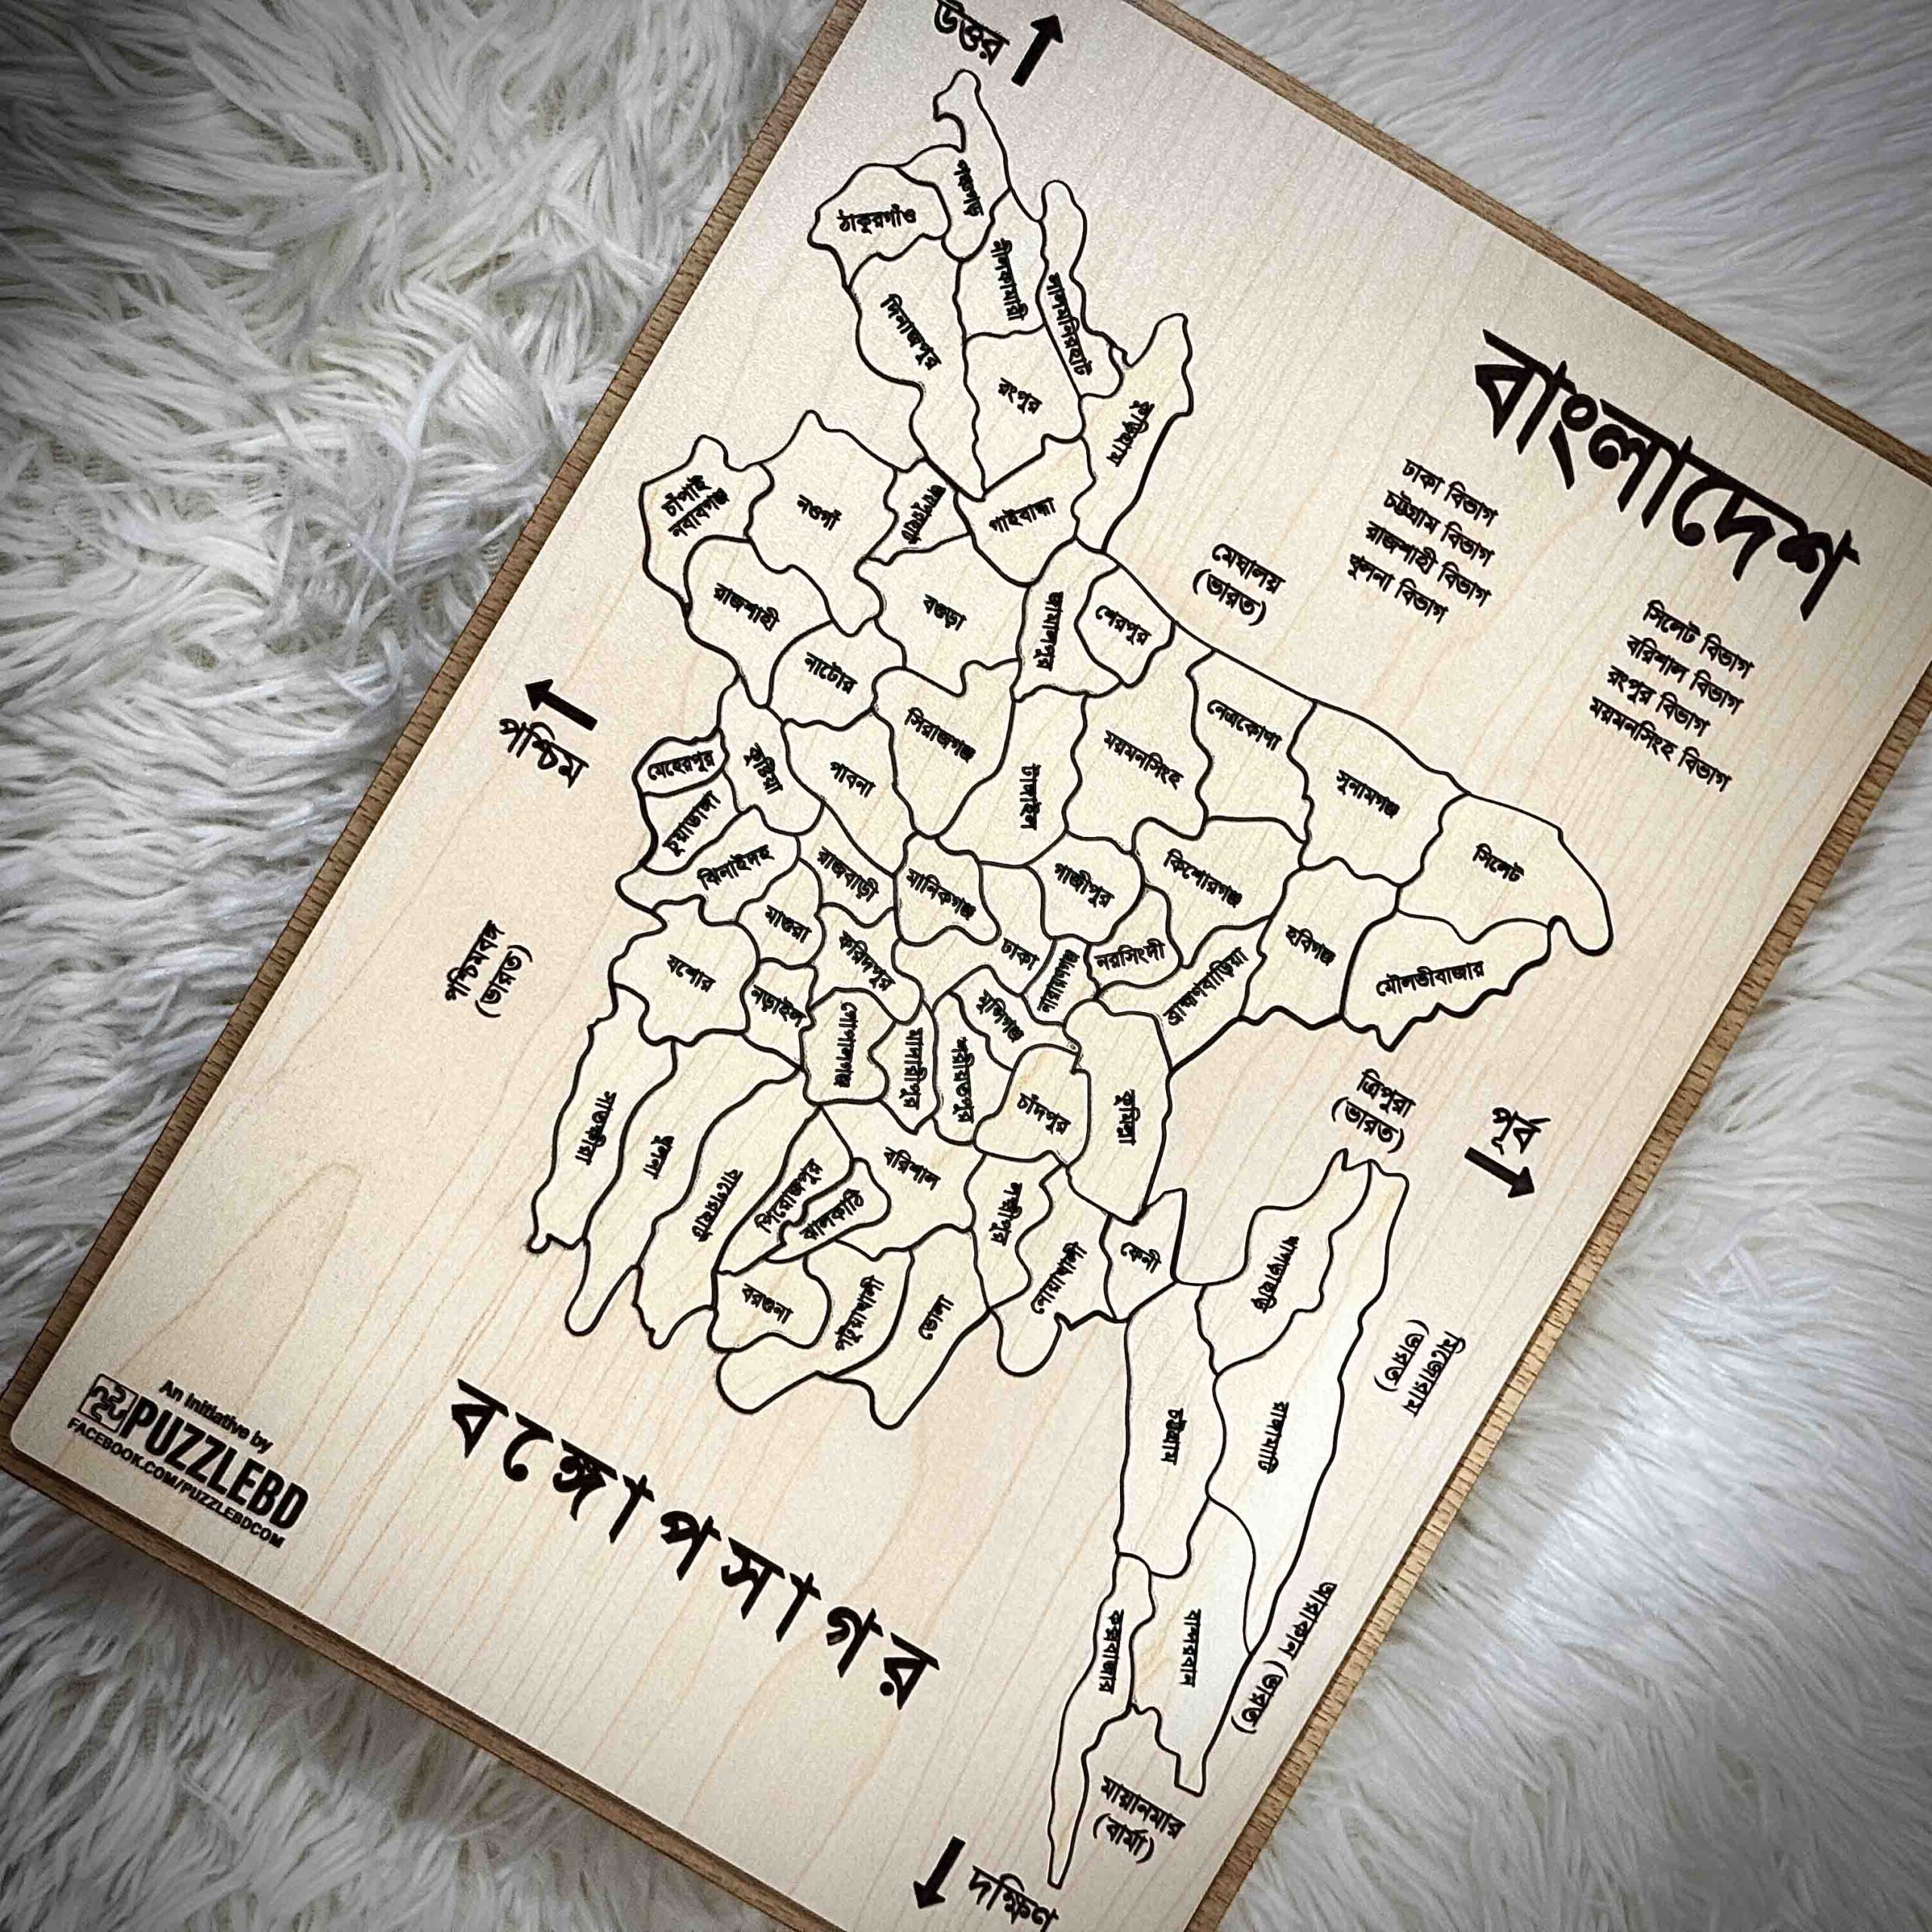 উত্তর
বাংলাদেশ
ঢাকা বিভাগ
চট্টগ্রাম বিভাগ
রাজশাহী বিভাগ
খুলনা বিভাগ
সিলেট বিভাগ
বরিশাল বিভাগ
রংপুর বিভাগ
ময়মনসিংহ বিভাগ
পঞ্চগড়
ঠাকুরগাঁও
নীলফামারী
লালমনিরহাট
দিনাজপুর
রংপুর
কুড়িগ্রাম
চাঁপাই
নবাবগঞ্জ
নওগাঁ
জয়পুরহাট
গাইবান্ধা
মেঘালয়
(ভারত)
রাজশাহী
বগুড়া
জামালপুর
শেরপুর
নাটোর
সিরাজগঞ্জ
ময়মনসিংহ
নেত্রকোণা
সুনামগঞ্জ
সিলেট
পশ্চিম
মেহেরপুর
কুষ্টিয়া
পাবনা
টাঙ্গাইল
চুয়াডাঙ্গা
ঝিনাইদহ
রাজবাড়ী
মানিকগঞ্জ
গাজীপুর
কিশোরগঞ্জ
মাগুরা
ফরিদপুর
ঢাকা
নারায়ণগঞ্জ
নরসিংদী
ব্রাহ্মণবাড়িয়া
হবিগঞ্জ
মৌলভীবাজার
পশ্চিমবঙ্গ
(ভারত)
যশোর
নড়াইল
গোপালগঞ্জ
মাদারীপুর
শরীয়তপুর
মুন্সিগঞ্জ
চাঁদপুর
কুমিল্লা
ত্রিপুরা
(ভারত)
পূর্ব
সাতক্ষীরা
খুলনা
বাগেরহাট
পিরোজপুর
ঝালকাঠি
বরিশাল
লক্ষ্মীপুর
নোয়াখালী
ফেনী
খাগড়াছড়ি
বরগুনা
পটুয়াখালী
ভোলা
মিজোরাম
(ভারত)
চট্টগ্রাম
রাঙ্গামাটি
বঙ্গোপসাগর
An Initiative by
PUZZLEBD
FACEBOOK.COM/PUZZLEBDCOM
কক্সবাজার
বান্দরবান
আরাকান (ভারত)
মায়ানমার
(বার্মা)
দক্ষিণ